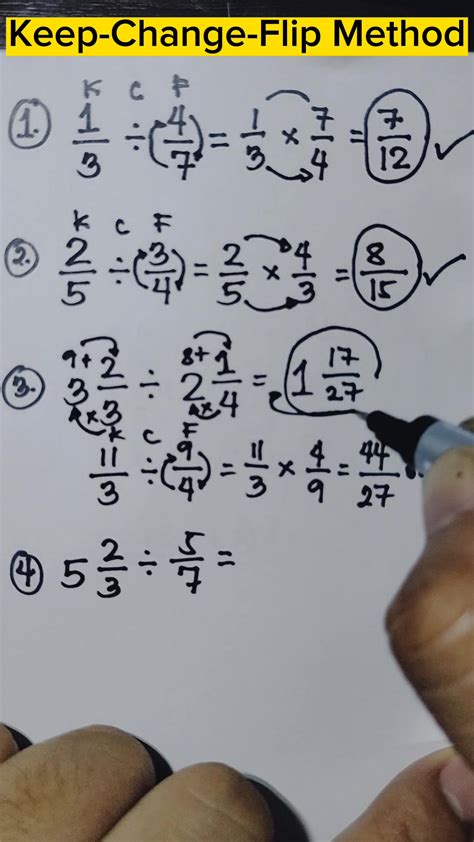 Keep-Change-Flip Method
K C F
1. 1/3 ÷ (4/7) = 1/3 × 7/4 = 7/12 ✓
K C F
2. 2/5 ÷ (3/4) = 2/5 × 4/3 = 8/15 ✓
9+ 8+
3. 3 2/3 ÷ 2 1/4 = 1 17/27
× ×
K C F
11/3 ÷ (9/4) = 11/3 × 4/9 = 44/27
4. 5 2/3 ÷ 5/7 =